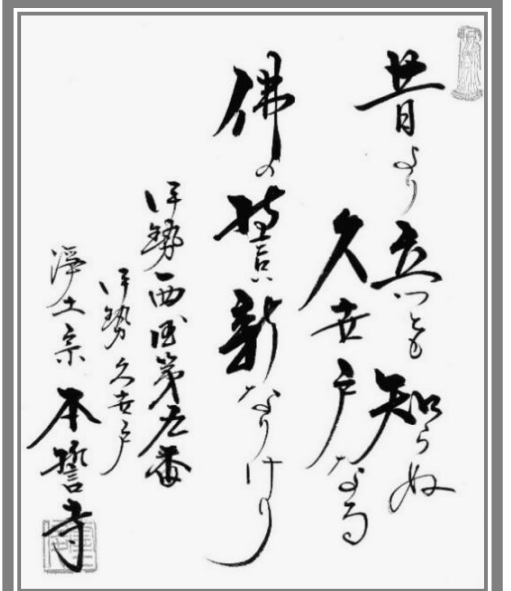 昔より立つとも知らぬ
久世戸なる
佛の誓い新なりけり
伊勢西国第九番
伊勢久世戸
浄土宗 本誓寺